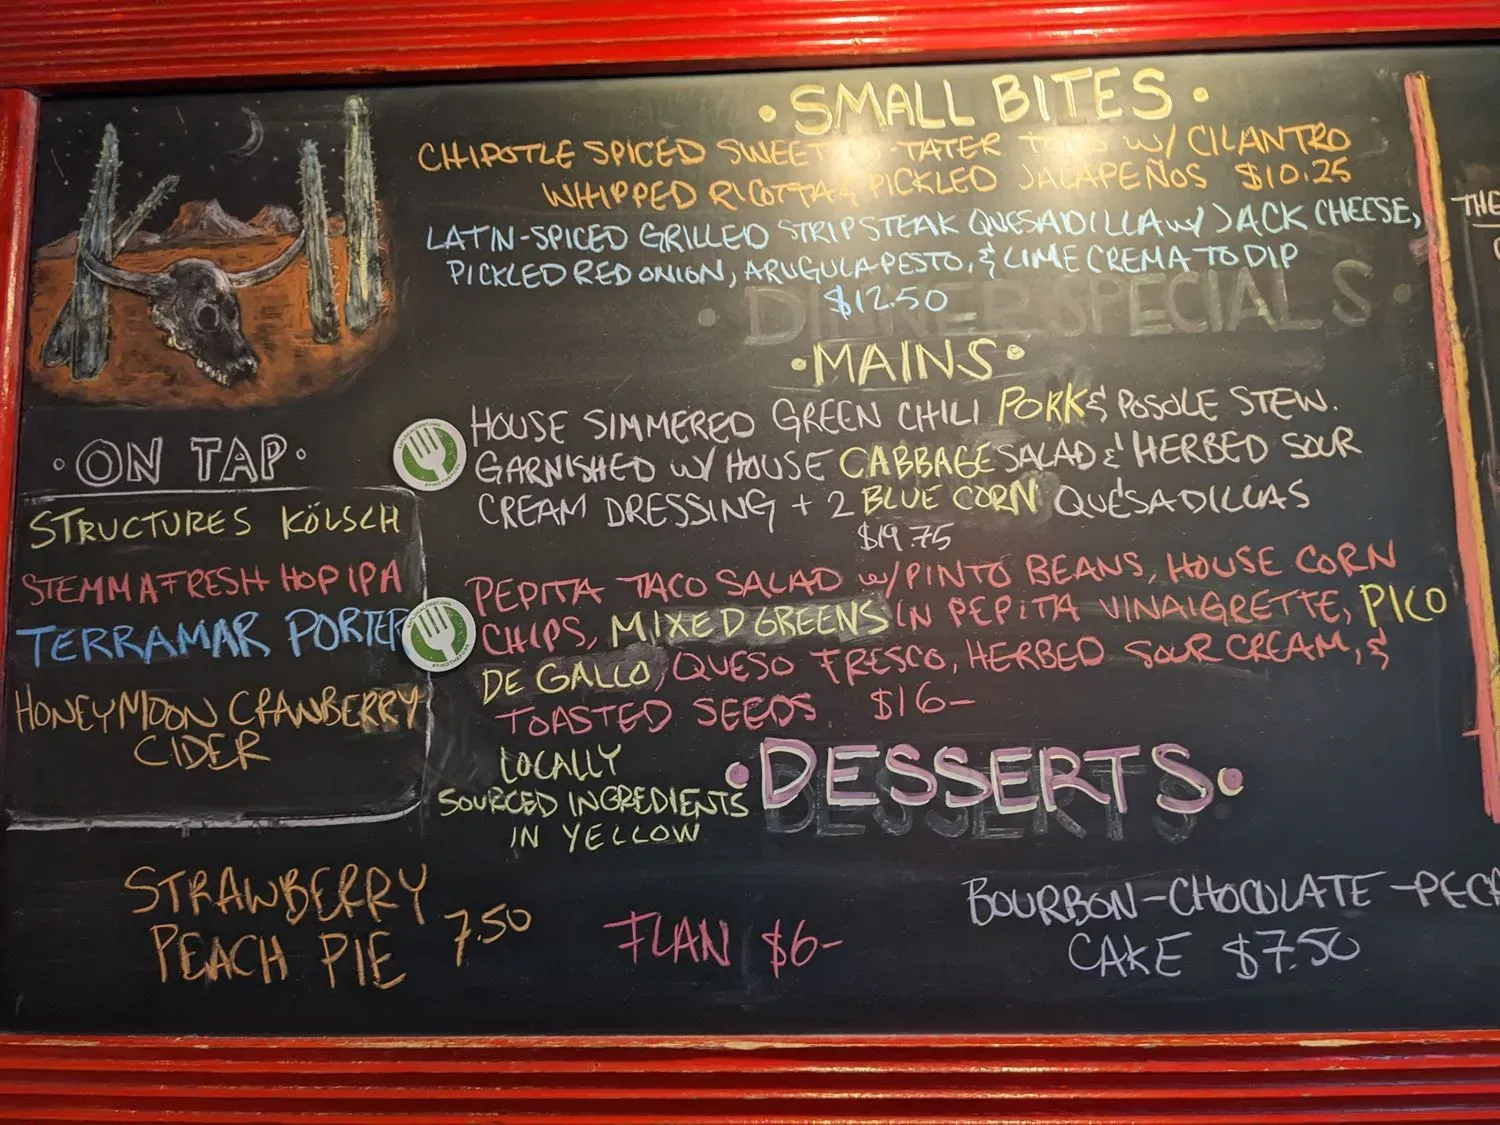 • SMALL BITES •
CHIPOTLE SPICED SWEET TATER W/ CILANTRO
WHIPPED RICOTTA & PICKLED JALAPEÑOS $10.25
LATIN-SPICED GRILLED STRIP STEAK QUESADILLA W/ JACK CHEESE,
PICKLED RED ONION, ARUGULA PESTO, & LIME CREMA TO DIP
$12.50
• DINNER SPECIALS •
• MAINS •
HOUSE SIMMERED GREEN CHILI PORK & POSOLE STEW.
GARNISHED W/ HOUSE CABBAGE SALAD & HERBED SOUR
CREAM DRESSING + 2 BLUE CORN QUESADILLAS
$19.75
PEPITA TACO SALAD W/ PINTO BEANS, HOUSE CORN
CHIPS, MIXED GREENS IN PEPITA VINAIGRETTE, PICO
DE GALLO, QUESO FRESCO, HERBED SOUR CREAM, &
TOASTED SEEDS $16-
LOCALLY
SOURCED INGREDIENTS
IN YELLOW
• ON TAP •
STRUCTURES KÖLSCH
STEMMA FRESH HOP IPA
TERRAMAR PORTER
HONEYMOON CRANBERRY
CIDER
• DESSERTS •
STRAWBERRY
PEACH PIE 7.50
FLAN $6-
BOURBON-CHOCOLATE-PECA
CAKE $7.50
THE